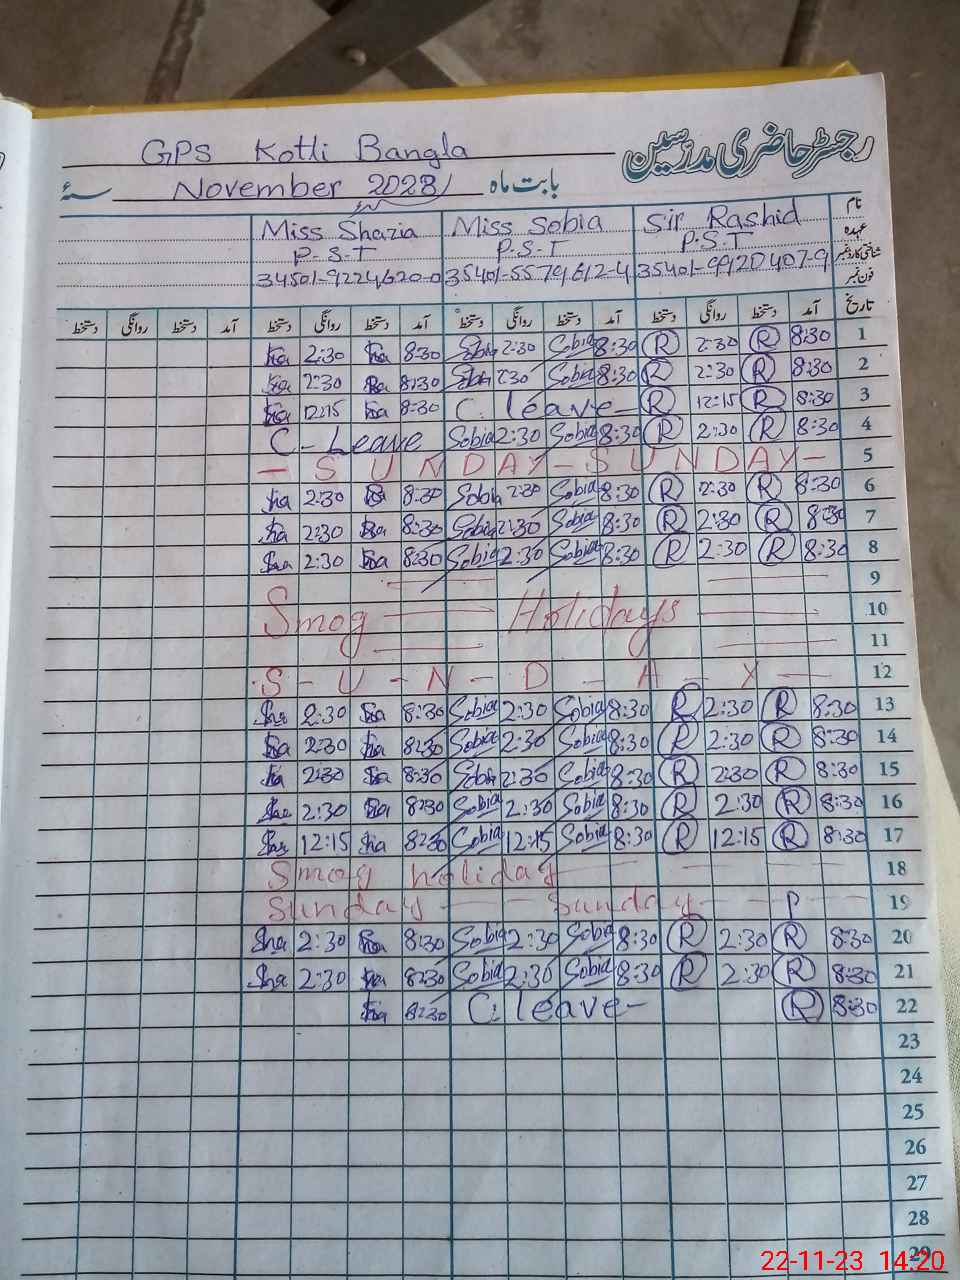 رجسٹر حاضری مدرسین
GPS Kotli Bangla
بابت ماہ November 2023 سنہ
نام Sir Rashid Miss Sobia Miss Shazia
عہدہ P.S.T P.S.T P-S-T
شناختی کارڈ نمبر 35401-9920407-9 35401-5579612-4 34501-9224620-0
فون نمبر
تاریخ آمد دستخط روانگی دستخط آمد دستخط روانگی دستخط آمد دستخط روانگی دستخط آمد دستخط روانگی دستخط
1 8:30 R 2:30 R 8:30 Sobia 2:30 Sobia 8:30 2:30
2 8:30 R 2:30 R 8:30 Sobia 2:30 Sobia 8:30 2:30
3 8:30 R 12:15 R C. leave- 8:30 12:15
4 8:30 R 2:30 R 8:30 Sobia 2:30 Sobia C-Leave
5 - SUNDAY - SUNDAY -
6 8:30 R 2:30 R 8:30 Sobia 2:30 Sobia 8:30 2:30
7 8:30 R 2:30 R 8:30 Sobia 2:30 Sobia 8:30 2:30
8 8:30 R 2:30 R 8:30 Sobia 2:30 Sobia 8:30 2:30
9
10 Smog Holidays
11
12 S-U-N-D-A-Y-
13 8:30 R 2:30 R 8:30 Sobia 2:30 Sobia 8:30 2:30
14 8:30 R 2:30 R 8:30 Sobia 2:30 Sobia 8:30 2:30
15 8:30 R 2:30 R 8:30 Sobia 2:30 Sobia 8:30 2:30
16 8:30 R 2:30 R 8:30 Sobia 2:30 Sobia 8:30 2:30
17 8:30 R 12:15 R 8:30 Sobia 12:15 Sobia 8:30 12:15
18 Smog holiday
19 Sunday Sunday P
20 8:30 R 2:30 R 8:30 Sobia 2:30 Sobia 8:30 2:30
21 8:30 R 2:30 R 8:30 Sobia 2:30 Sobia 8:30 2:30
22 8:30 R C. leave- 8:30
23
24
25
26
27
28
29
22-11-23 14:20